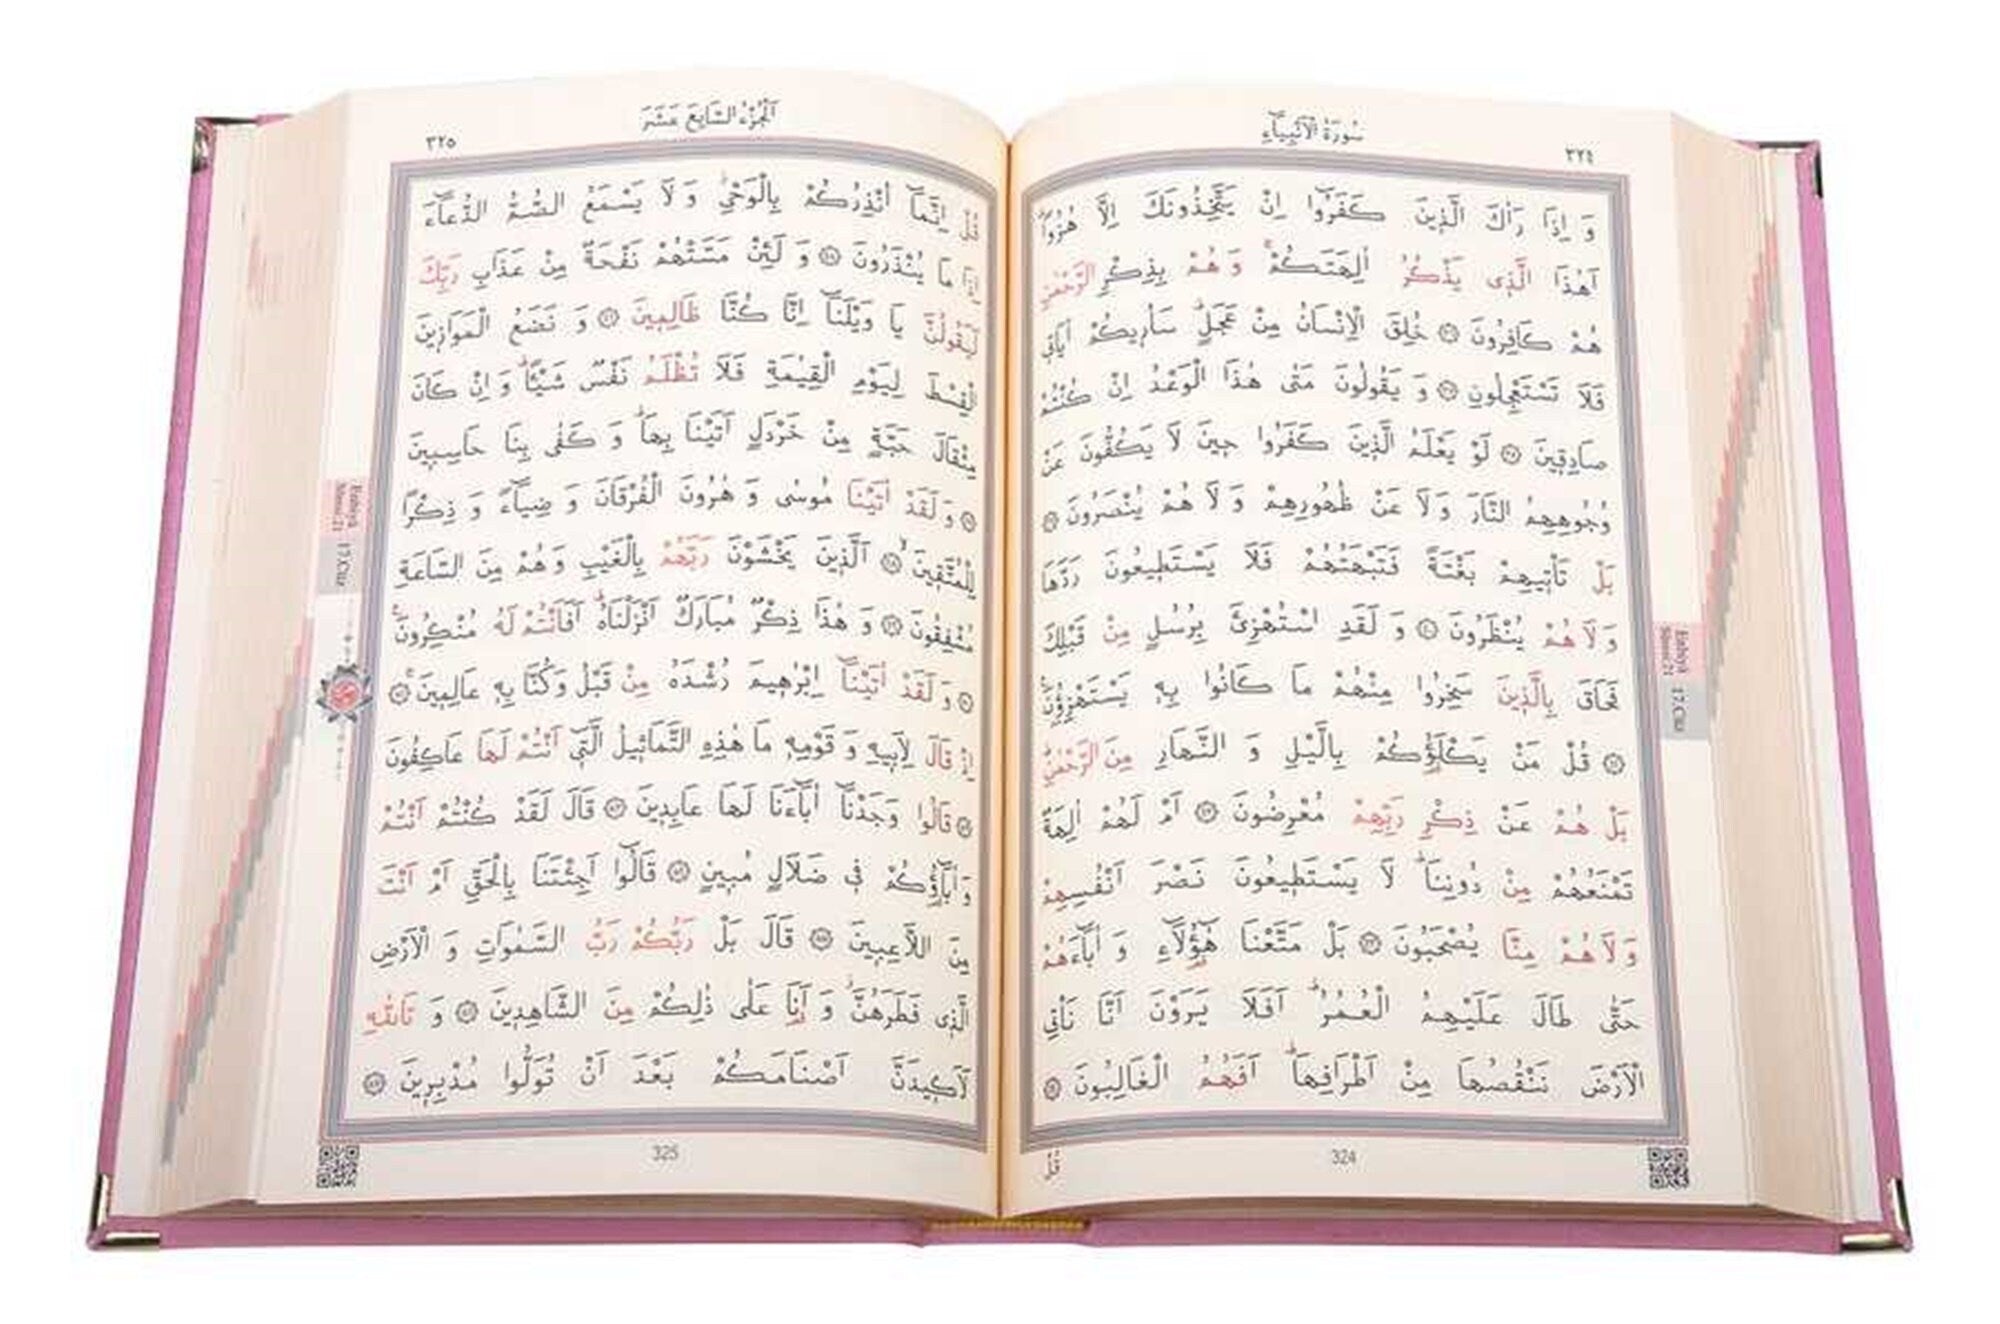 سُورَةُ الْاَنْبِيَٓاءِ
٣٢٤
وَ اِذَا رَاٰكَ الَّذ۪ينَ كَفَرُٓوا اِنْ يَتَّخِذُونَكَ اِلَّا هُزُوًاۜ
اَهٰذَا الَّذ۪ى يَذْكُرُ اٰلِهَتَكُمْۚ وَ هُمْ بِذِكْرِ الرَّحْمٰنِ
هُمْ كَافِرُونَ ٣٦ خُلِقَ الْاِنْسَانُ مِنْ عَجَلٍۜ سَاُر۪يكُمْ اٰيَات۪ى
فَلَا تَسْتَعْجِلُونِ ٣٧ وَ يَقُولُونَ مَتٰى هٰذَا الْوَعْدُ اِنْ كُنْتُمْ
صَادِق۪ينَ ٣٨ لَوْ يَعْلَمُ الَّذ۪ينَ كَفَرُوا ح۪ينَ لَا يَكُفُّونَ عَنْ
وُجُوهِهِمُ النَّارَ وَ لَا عَنْ ظُهُورِهِمْ وَ لَا هُمْ يُنْصَرُونَ ٣٩
بَلْ تَأْت۪يهِمْ بَغْتَةً فَتَبْهَتُهُمْ فَلَا يَسْتَط۪يعُونَ رَدَّهَا
وَ لَا هُمْ يُنْظَرُونَ ٤٠ وَ لَقَدِ اسْتُهْزِئَ بِرُسُلٍ مِنْ قَبْلِكَ
فَحَاقَ بِالَّذ۪ينَ سَخِرُوا مِنْهُمْ مَا كَانُوا بِه۪ يَسْتَهْزِؤُنَ۟
٤١ قُلْ مَنْ يَكْلَؤُكُمْ بِالَّيْلِ وَ النَّهَارِ مِنَ الرَّحْمٰنِۜ
بَلْ هُمْ عَنْ ذِكْرِ رَبِّهِمْ مُعْرِضُونَ ٤٢ اَمْ لَهُمْ اٰلِهَةٌ
تَمْنَعُهُمْ مِنْ دُونِنَاۜ لَا يَسْتَط۪يعُونَ نَصْرَ اَنْفُسِهِمْ
وَ لَا هُمْ مِنَّا يُصْحَبُونَ ٤٣ بَلْ مَتَّعْنَا هٰٓؤُ۬لَٓاءِ وَ اٰبَٓاءَهُمْ
حَتّٰى طَالَ عَلَيْهِمُ الْعُمُرُۜ اَفَلَا يَرَوْنَ اَنَّا نَأْتِى
الْاَرْضَ نَنْقُصُهَا مِنْ اَطْرَافِهَاۜ اَفَهُمُ الْغَالِبُونَ ٤٤
324
قُلْ
Enbiyâ
Sûresi: 21
17.Cüz
اَلْجُزْءُ السَّابِعَ عَشَرَ
٣٢٥
قُلْ اِنَّمَٓا اُنْذِرُكُمْ بِالْوَحْىِۘ وَ لَا يَسْمَعُ الصُّمُّ الدُّعَٓاءَ
اِذَا مَا يُنْذَرُونَ ٤٥ وَ لَئِنْ مَسَّتْهُمْ نَفْحَةٌ مِنْ عَذَابِ رَبِّكَ
لَيَقُولُنَّ يَا وَيْلَنَٓا اِنَّا كُنَّا ظَالِم۪ينَ ٤٦ وَ نَضَعُ الْمَوَاز۪ينَ
الْقِسْطَ لِيَوْمِ الْقِيٰمَةِ فَلَا تُظْلَمُ نَفْسٌ شَيْـًٔاۜ وَ اِنْ كَانَ
مِثْقَالَ حَبَّةٍ مِنْ خَرْدَلٍ اَتَيْنَا بِهَاۜ وَ كَفٰى بِنَا حَاسِب۪ينَ
٤٧ وَ لَقَدْ اٰتَيْنَا مُوسٰى وَ هٰرُونَ الْفُرْقَانَ وَ ضِيَٓاءً وَ ذِكْرًا
لِلْمُتَّق۪ينَۙ ٤٨ اَلَّذ۪ينَ يَخْشَوْنَ رَبَّهُمْ بِالْغَيْبِ وَ هُمْ مِنَ السَّاعَةِ
مُشْفِقُونَ ٤٩ وَ هٰذَا ذِكْرٌ مُبَارَكٌ اَنْزَلْنَاهُۜ اَفَاَنْتُمْ لَهُ مُنْكِرُونَ۟
٥٠ وَ لَقَدْ اٰتَيْنَٓا اِبْرٰه۪يمَ رُشْدَهُ مِنْ قَبْلُ وَ كُنَّا بِه۪ عَالِم۪ينَۚ ٥١
اِذْ قَالَ لِاَب۪يهِ وَ قَوْمِه۪ مَا هٰذِهِ التَّمَاث۪يلُ الَّت۪ٓى اَنْتُمْ لَهَا عَاكِفُونَ
٥٢ قَالُوا وَجَدْنَٓا اٰبَٓاءَنَا لَهَا عَابِد۪ينَ ٥٣ قَالَ لَقَدْ كُنْتُمْ اَنْتُمْ
وَ اٰبَٓاؤُ۬كُمْ ف۪ى ضَلَالٍ مُب۪ينٍ ٥٤ قَالُٓوا اَجِئْتَنَا بِالْحَقِّ اَمْ اَنْتَ
مِنَ اللَّاعِب۪ينَ ٥٥ قَالَ بَلْ رَبُّكُمْ رَبُّ السَّمٰوَاتِ وَ الْاَرْضِ
الَّذ۪ى فَطَرَهُنَّۘ وَ اَنَا۬ عَلٰى ذٰلِكُمْ مِنَ الشَّاهِد۪ينَ ٥٦ وَ تَاللّٰهِ
لَاَك۪يدَنَّ اَصْنَامَكُمْ بَعْدَ اَنْ تُوَلُّوا مُدْبِر۪ينَ ٥٧
325
Enbiyâ
Sûresi: 21
17.Cüz